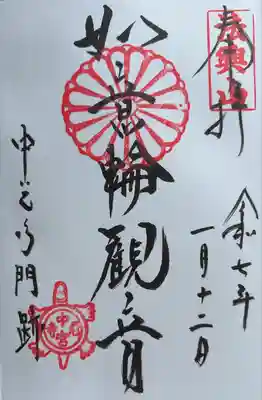 奉拝
令和七年
一月十二日
如意輪觀音
中宮寺門跡
中宮寺